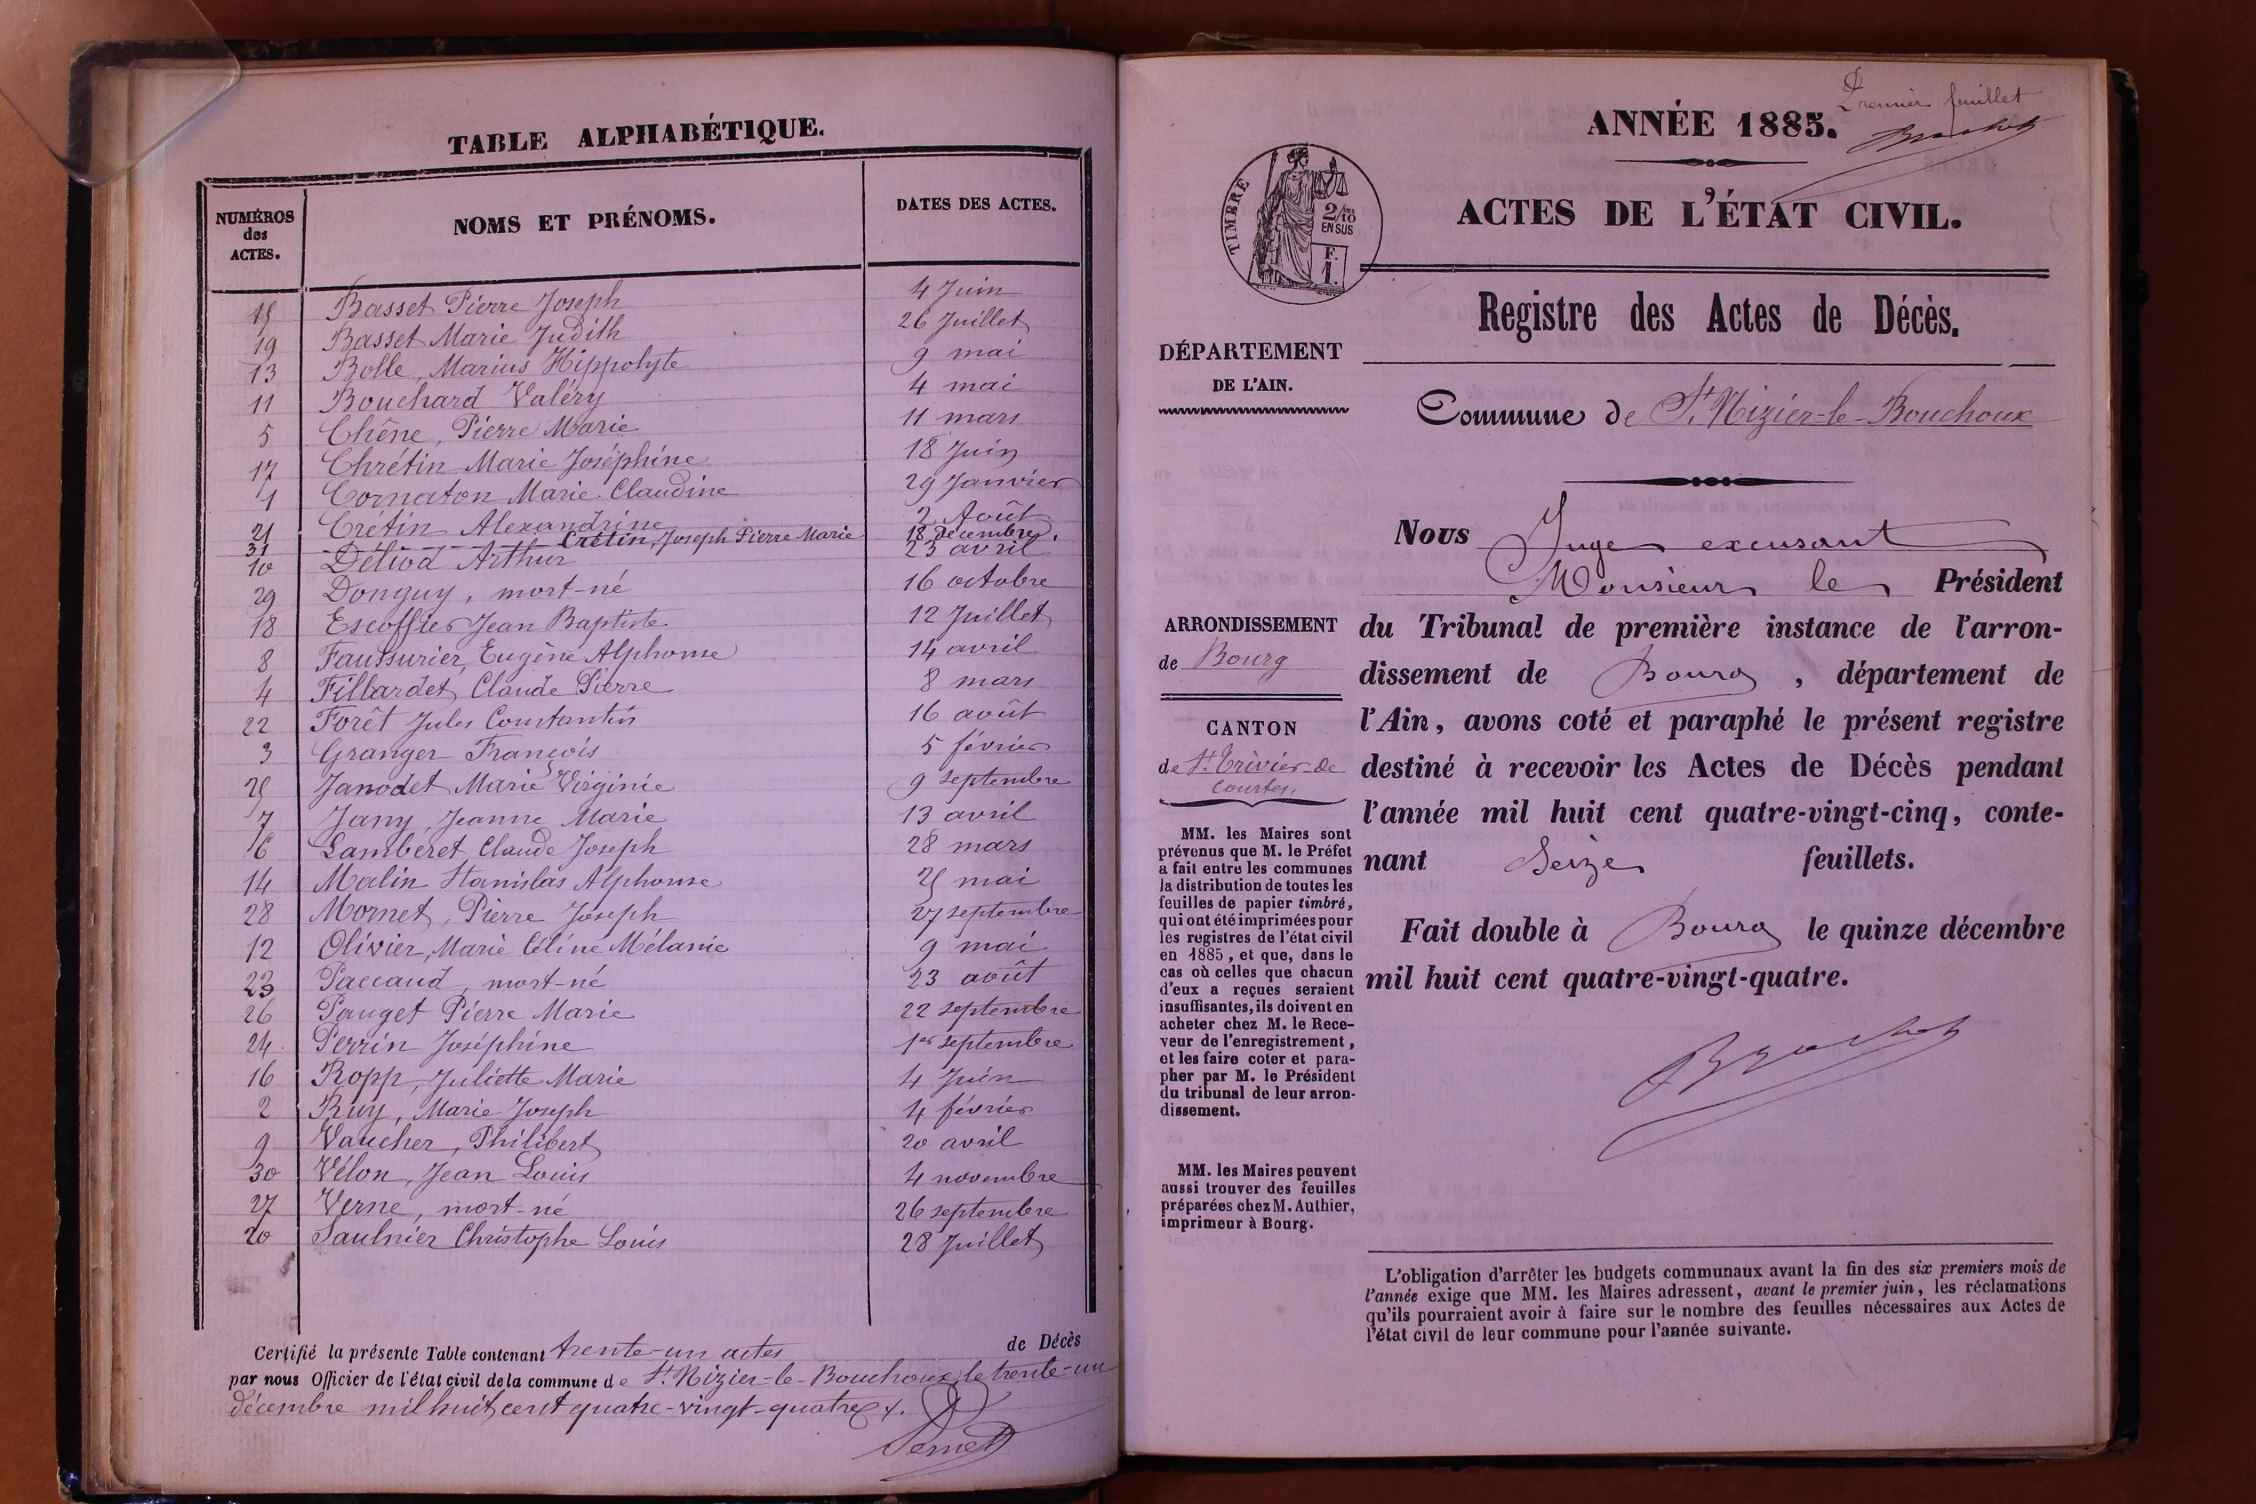 TABLE ALPHABÉTIQUE.
NUMÉROS des ACTES. NOMS ET PRÉNOMS. DATES DES ACTES.
15 Basset Pierre Joseph 4 Juin
19 Basset Marie Judith 26 Juillet
13 Bolle, Marius Hippolyte 9 mai
11 Bouchard Valéry 4 mai
5 Chêne, Pierre Marie 11 mars
17 Chrétin Marie Joséphine 18 Juin
1 Cornaton Marie Claudine 29 Janvier
21 Crétin Alexandrine 2 Août
31 Crétin, Joseph Pierre Marie 18 décembre.
10 Déliod Arthur 23 avril
29 Donguy, mort-né 16 octobre
18 Escoffier Jean Baptiste 12 Juillet
8 Faussurier, Eugène Alphonse 14 avril
4 Fillardet, Claude Pierre 8 mars
22 Forêt Jules Constantin 16 août
3 Granger François 5 février
25 Janodet Marie Virginie 9 septembre
7 Jany, Jeanne Marie 13 avril
6 Lamberet Claude Joseph 28 mars
14 Malin Stanislas Alphonse 25 mai
28 Mornet, Pierre Joseph 27 septembre
12 Olivier, Marie Céline Mélanie 9 mai
23 Paccaud, mort-né 23 août
26 Pauget Pierre Marie 22 septembre
24 Perrin Joséphine 1er septembre
16 Ropp, Juliette Marie 4 Juin
2 Ruy, Marie Joseph 4 février
9 Vaucher, Philibert 20 avril
30 Vélon, Jean Louis 4 novembre
27 Verne, mort-né 26 septembre
20 Saulnier Christophe Louis 28 Juillet
Certifié la présente Table contenant trente-un actes de Décès
par nous Officier de l'état civil de la commune de St. Nizier-le-Bouchoux, le trente-un
décembre mil huit cent quatre-vingt-quatre.
Pernet
Premier feuillet
Brochet
ANNÉE 1885.
ACTES DE L'ÉTAT CIVIL.
TIMBRE
2/10 EN SUS
F. 1.
Registre des Actes de Décès.
DÉPARTEMENT
DE L'AIN.
Commune de St. Nizier-le-Bouchoux
ARRONDISSEMENT
de Bourg
CANTON
de St. Trivier-de
Courtes.
MM. les Maires sont
prévenus que M. le Préfet
a fait entre les communes
la distribution de toutes les
feuilles de papier timbré,
qui ont été imprimées pour
les registres de l'état civil
en 1885, et que, dans le
cas où celles que chacun
d'eux a reçues seraient
insuffisantes, ils doivent en
acheter chez M. le Rece-
veur de l'enregistrement,
et les faire coter et para-
pher par M. le Président
du tribunal de leur arron-
dissement.
MM. les Maires peuvent
aussi trouver des feuilles
préparées chez M. Authier,
imprimeur à Bourg.
Nous Juge excusant
Monsieur le Président
du Tribunal de première instance de l'arron-
dissement de Bourg, département de
l'Ain, avons coté et paraphé le présent registre
destiné à recevoir les Actes de Décès pendant
l'année mil huit cent quatre-vingt-cinq, conte-
nant Seize feuillets.
Fait double à Bourg le quinze décembre
mil huit cent quatre-vingt-quatre.
Brochet
L'obligation d'arrêter les budgets communaux avant la fin des six premiers mois de
l'année exige que MM. les Maires adressent, avant le premier juin, les réclamations
qu'ils pourraient avoir à faire sur le nombre des feuilles nécessaires aux Actes de
l'état civil de leur commune pour l'année suivante.